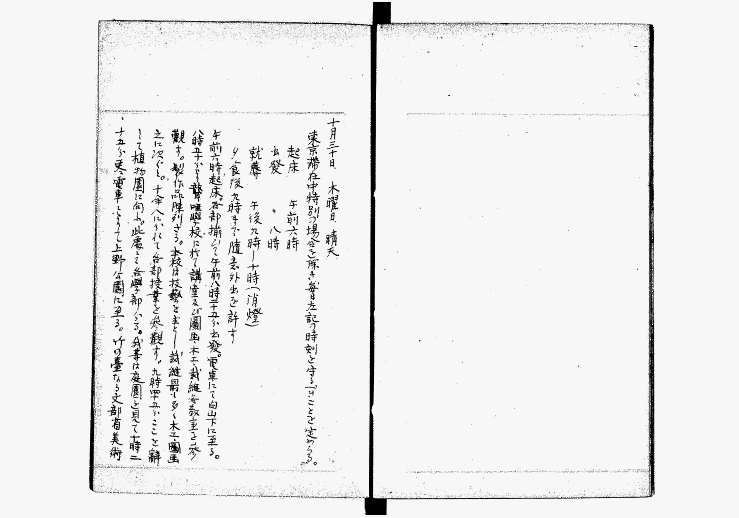 十月三十日 木曜日 晴天
東京滞在中特別の場合を除き毎日左記の時刻を守るべきことを定めらる。
起床 午前六時
出發 〃 八時
就蓐 午後九時―十時(消燈)
夕食後九時まで随意外出を許す
午前六時起床。各部揃いて午前八時二十五分出發。電車にて白山下に至る。
八時五十分 聾唖學校に於て講堂及び圖画木工裁縫各教室を参
觀す。製作品陳列さる。本校は技藝を主とし裁縫最も多く木工圖画
之に次ぐ。十余人にわかれて各部授業を参觀す。九時四十五分ここを辭
して植物園に向ふ。此處にて各學部 る。我等は庭園を見て十時二
十五分 電車によりて上野公園に至る。竹の臺なる文部省美術